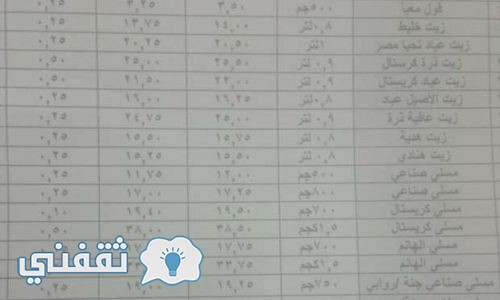 فول معبأ ٥٠٠جم ٣,٥٠ ٣,٢٥ ٠,٢٥
زيت خليط ٠,٨ لتر ١٤,٠٠ ١٣,٧٥ ٠,٢٥
زيت عباد تحيا مصر ١لتر ٢٠,٥٠ ٢٠,٢٥ ٠,٢٥
زيت ذرة كرستال ٠,٩ لتر ٢٥,٥٠ ٢٥,٠٠ ٠,٥٠
زيت عباد كريستال ٠,٩ لتر ٢٢,٠٠ ٢١,٥٠ ٠,٥٠
زيت الأصيل عباد ٠,٨ لتر ١٦,٢٥ ١٦,٠٠ ٠,٢٥
زيت عافية ذرة ٠,٩ لتر ٢٥,٠٠ ٢٤,٧٥ ٠,٢٥
زيت هدية ٠,٨ لتر ١٥,٧٥ ١٥,٥٠ ٠,٢٥
زيت هنادي ٠,٨ لتر ١٥,٥٠ ١٥,٢٥ ٠,٢٥
مسلى صناعي ٥٠٠جم ١٢,٠٠ ١١,٧٥ ٠,٢٥
مسلى صناعي ٨٠٠جم ١٧,٢٥ ١٧,٠٠ ٠,٢٥
مسلى كريستال ٧٠٠جم ١٩,٥٠ ١٩,٤٠ ٠,١٠
مسلى كريستال ١,٥كجم ٣٨,٥٠ ٣٨,٠٠ ٠,٥٠
مسلى الهانم ٧٠٠جم ١٧,٧٥
مسلى الهانم ١,٥كجم ٣٣,٧٥
مسلى صناعي جنة /روابي ٧٥٠جم ١٩,٢٥ ١٩,٠٠ ٠,٢٥
ثقفني